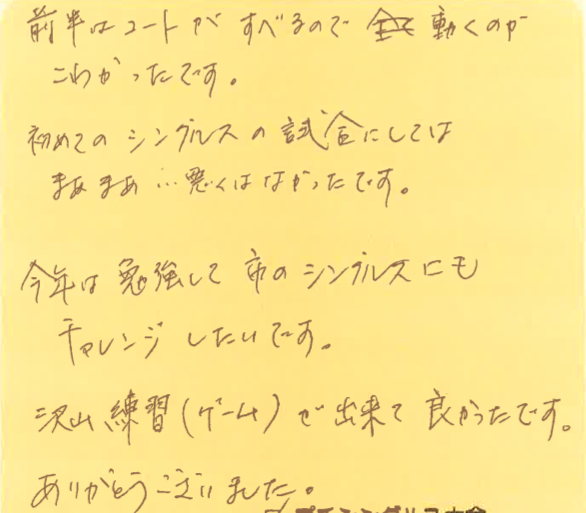 前半はコートがすべるので動くのが
こわかったです。
初めてのシングルスの試合にしては
まぁまぁ…悪くはなかったです。
今年は勉強して市のシングルスにも
チャレンジしたいです。
沢山練習(ゲーム)が出来て良かったです。
ありがとうございました。